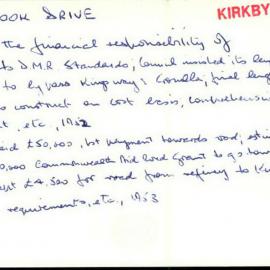 OOK DRIVE KIRKBY
the financial responsibility of
to D.M.R Standards, Council insisted its len
to bypass Kingsway; Cronulla; final leng
to construct on cost basis, comprehensive
t, etc., 1952
£50,000, 1st payment towards road, esti
0,000 Commonwealth Aid Road Grant to go towa
£4,500 for road from refinery to Ku
requirements, etc., 1953